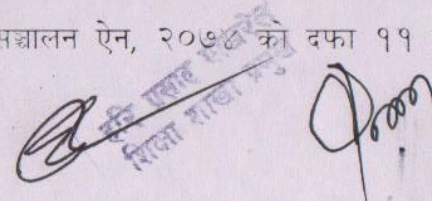 सञ्चालन ऐन, २०७४ को दफा ११
हरि प्रसाद
शिक्षा शाखा प्रमुख